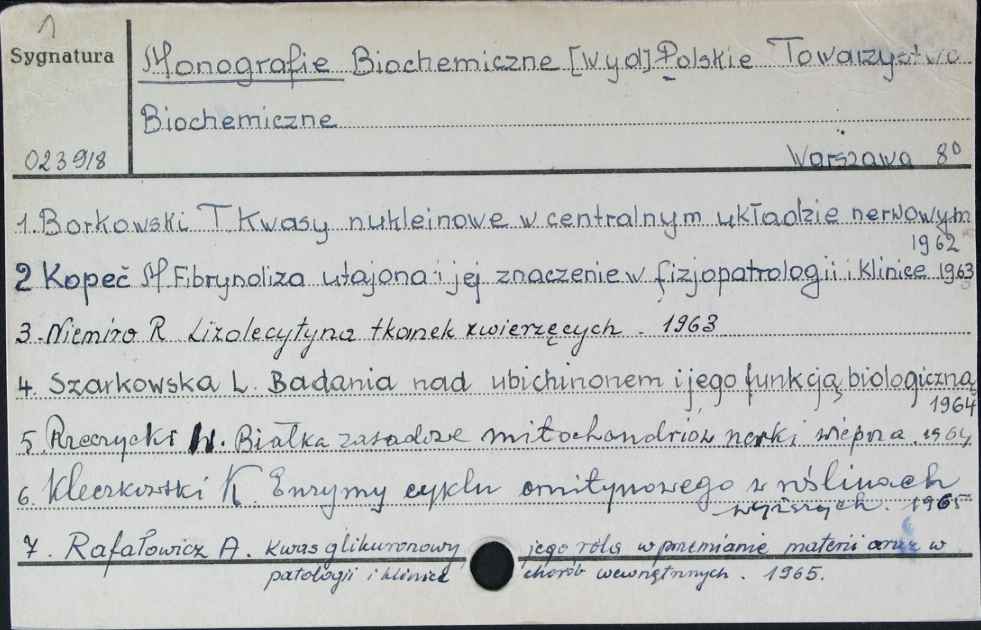 1
Sygnatura
Monografie Biochemiczne [wyd] Polskie Towarzystwo
Biochemiczne
023918
Warszawa 8°
1. Borkowski T Kwasy nukleinowe w centralnym układzie nerwowym
1962
2 Kopeč M Fibrynoliza utajona i jej znaczenie w fizjopatrologii i klinice 1963
3. Niemiro R Lizolecytyna tkanek zwierzęcych. 1963
4. Szarkowska L. Badania nad ubichinonem i jego funkcją biologiczną
1964
5. Rzeczycki W. Białka zasadowe mitochondriów nerki wieprza. 1964
6. Kleczkowski K. Enzymy cyklu ornitynowego w roślinach
wyższych. 1965
7. Rafałowicz A. Kwas glikuronowy jego rola w przemianie materii oraz w
patologii i klinice chorób wewnętrznych. 1965.